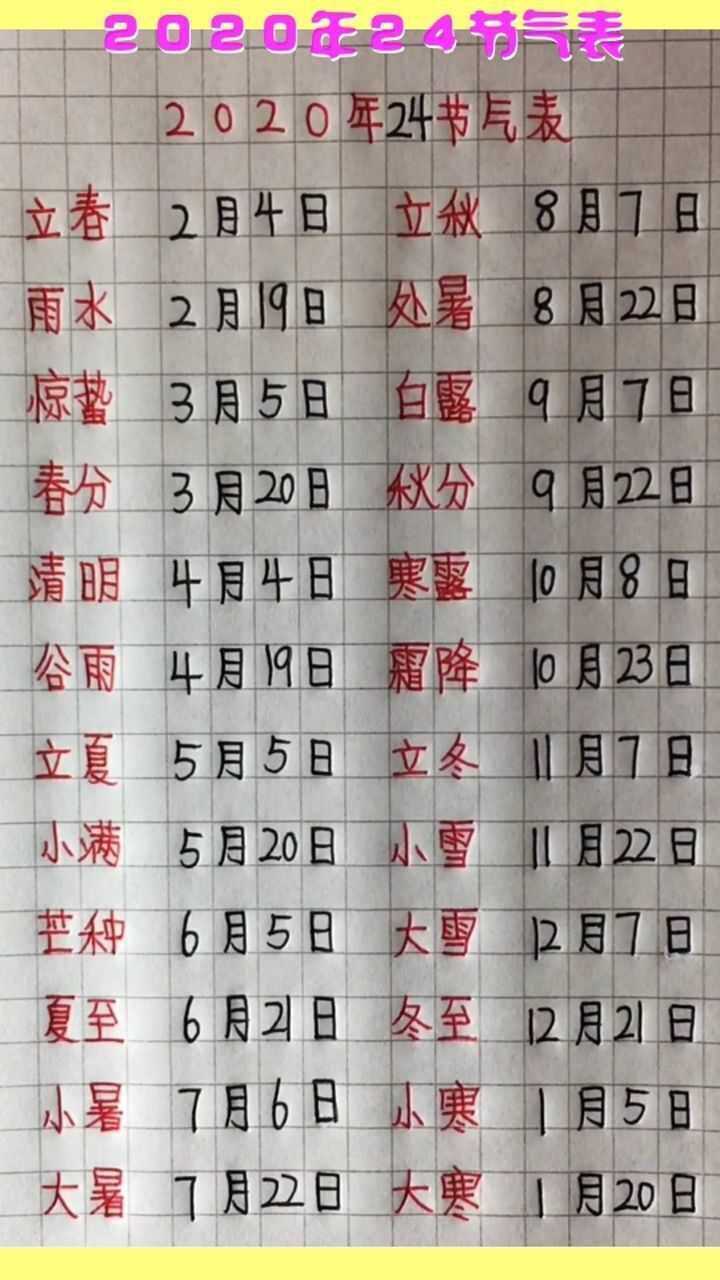 2020年24节气表
2020年24节气表
立春 2月4日 立秋 8月7日
雨水 2月19日 处暑 8月22日
惊蛰 3月5日 白露 9月7日
春分 3月20日 秋分 9月22日
清明 4月4日 寒露 10月8日
谷雨 4月19日 霜降 10月23日
立夏 5月5日 立冬 11月7日
小满 5月20日 小雪 11月22日
芒种 6月5日 大雪 12月7日
夏至 6月21日 冬至 12月21日
小暑 7月6日 小寒 1月5日
大暑 7月22日 大寒 1月20日